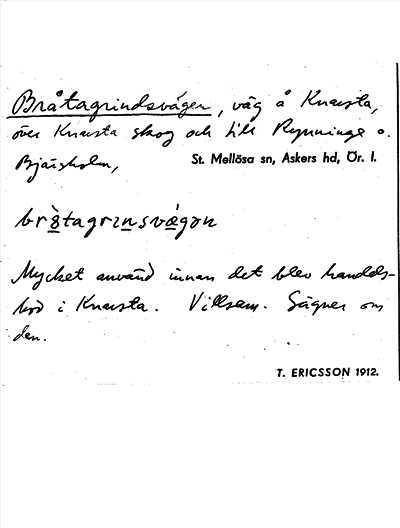 Bråtagrindsvägen, väg å Knavsta,
över Knavsta skog och till Rynninge o.
Bjärsholm,
St. Mellösa sn, Askers hd, Ör. l.
brò̤tagrinsvä̀gən
Mycket använd innan det blev handels-
bod i Knavsta. Villsam. Sägner om
den.
T. ERICSSON 1912.